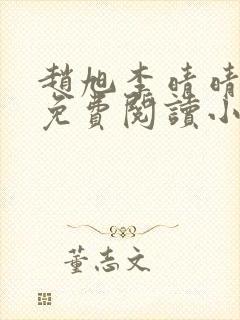 趙旭李晴晴
免費閱讀小
董志文